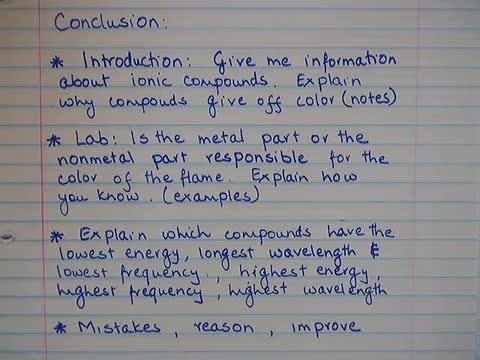 Conclusion:
* Introduction: Give me information
about ionic compounds. Explain
why compouds give off color (notes)
* Lab: Is the metal part or the
nonmetal part responsible for the
color of the flame. Explain how
you know. (examples)
* Explain which compounds have the
lowest energy, longest wavelength &
lowest frequency., highest energy,
highest frequency, highest wavelength
* Mistakes, reason, improve